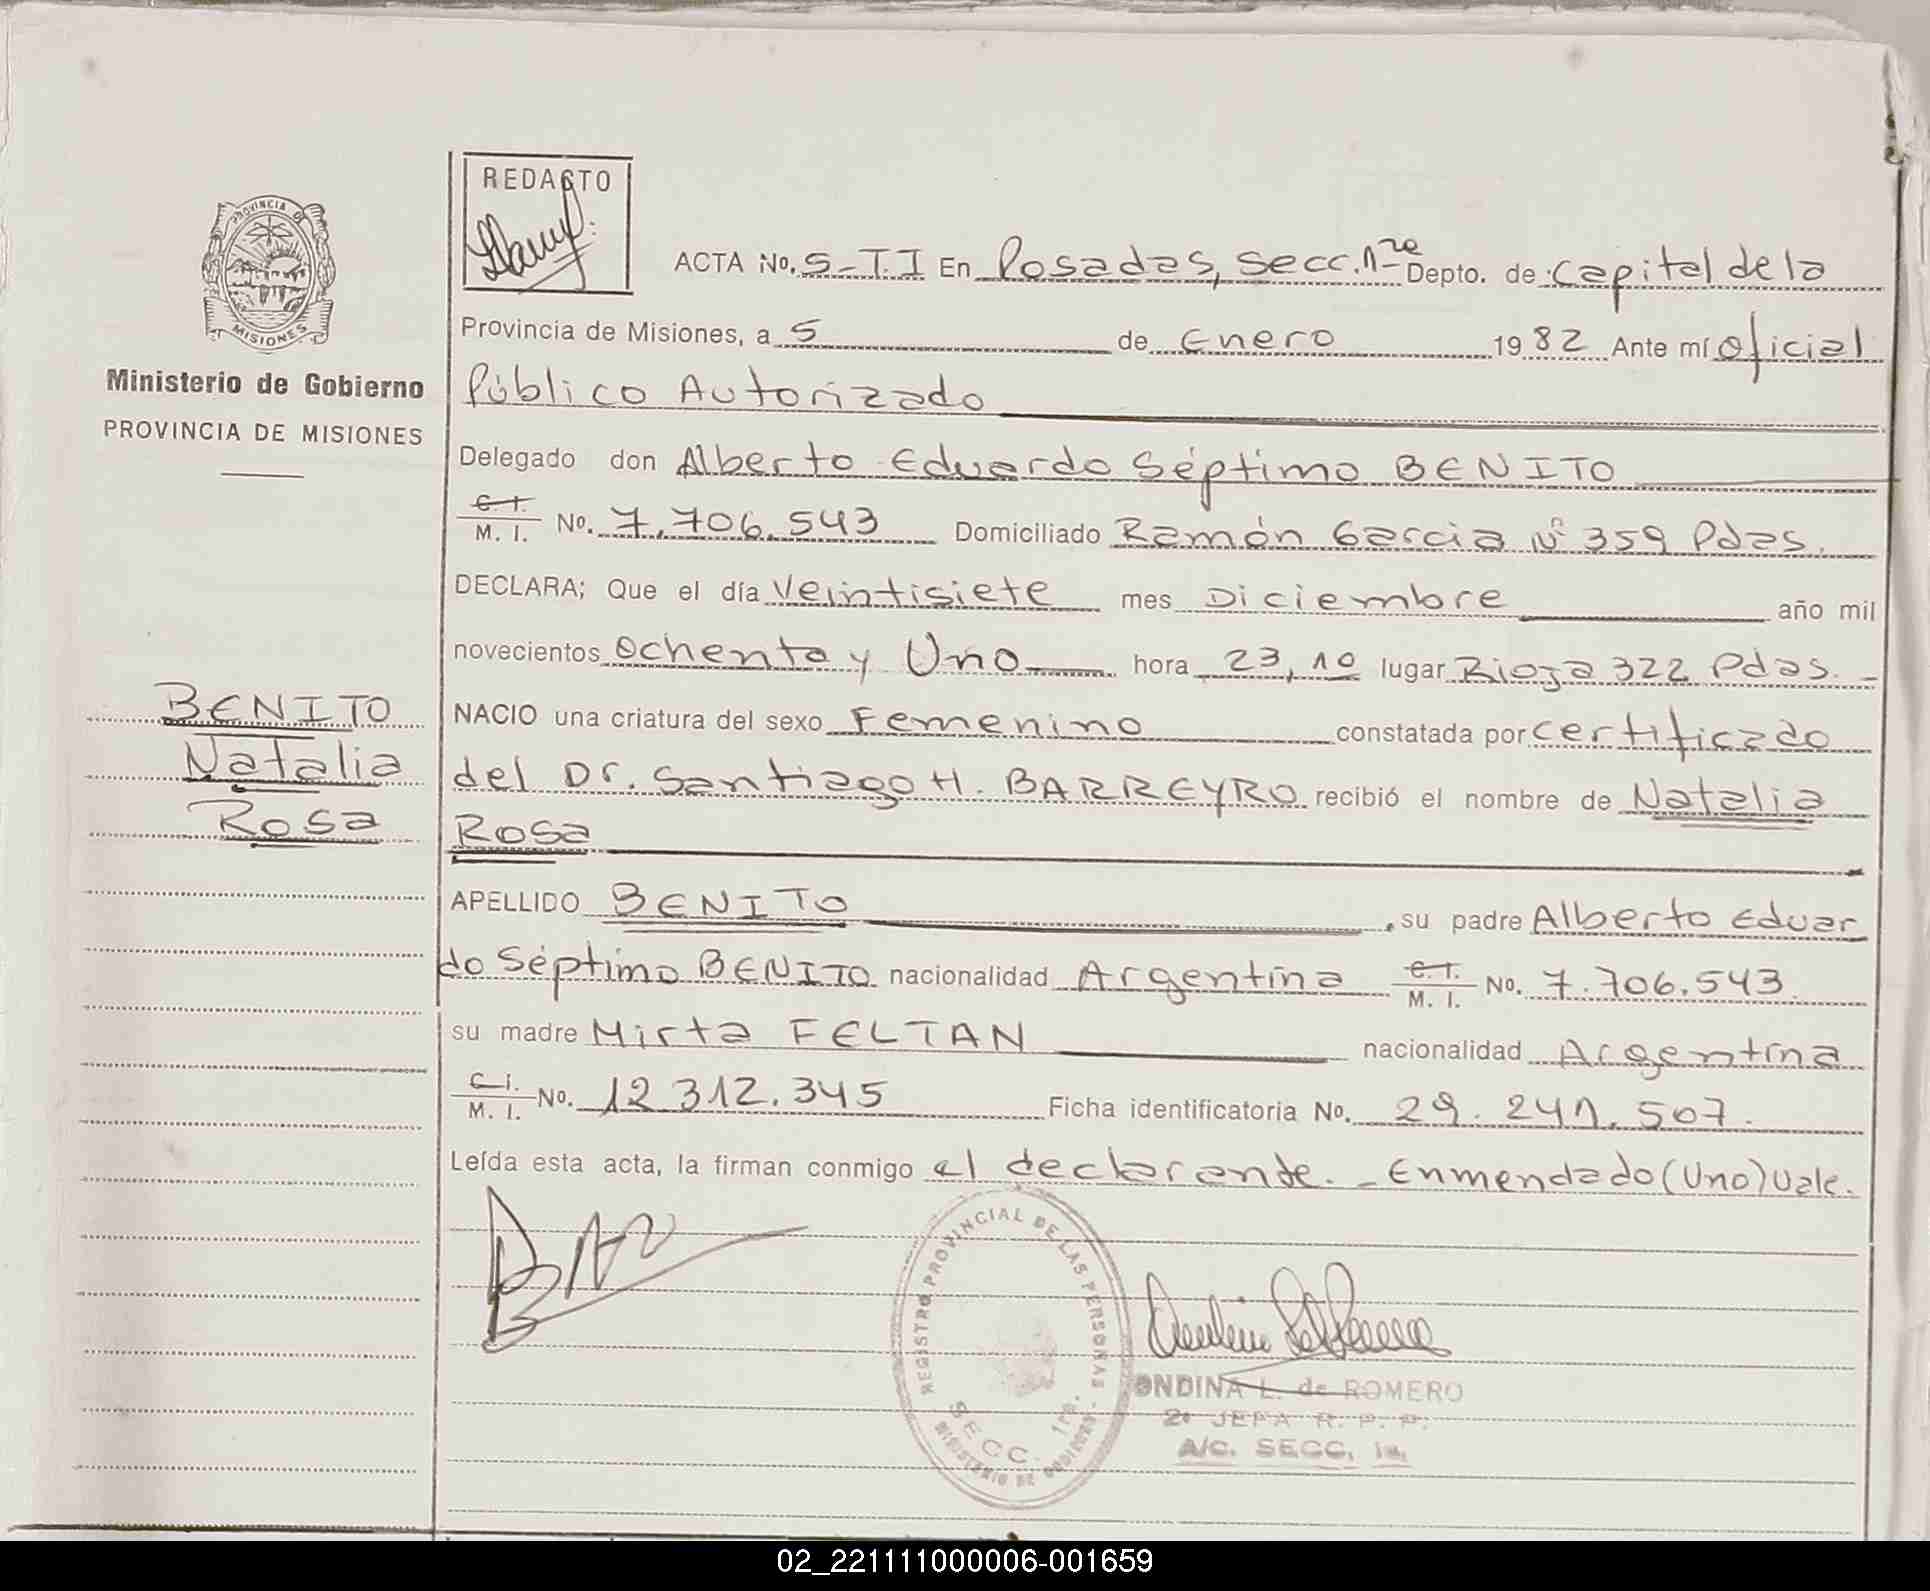 REDACTO
PROVINCIA DE
MISIONES
Ministerio de Gobierno
PROVINCIA DE MISIONES
BENITO
Natalia
Rosa
ACTA No. 5-T.I En Posadas, Secc. 1ra Depto. de Capital de la
Provincia de Misiones, a 5 de Enero 1982 Ante mí Oficial
Público Autorizado
Delegado don Alberto Eduardo Séptimo BENITO
C. I.
M. I. No. 7.706.543 Domiciliado Ramón Garcia Nº 359 Pdas.
DECLARA; Que el día Veintisiete mes Diciembre año mil
novecientos Ochenta y Uno hora 23,10 lugar Rioja 322 Pdas. -
NACIO una criatura del sexo Femenino constatada por certificado
del Dr. Santiago H. BARREYRO recibió el nombre de Natalia
Rosa
APELLIDO BENITO , su padre Alberto Eduar
do Séptimo BENITO nacionalidad Argentina C. I.
M. I. No. 7.706.543.
su madre Mirta FELTAN nacionalidad Argentina
C. I.
M. I. No. 12.312.345 Ficha identificatoria No. 29.241.507.
Leída esta acta, la firman conmigo el declarante. - Enmendado (Uno) Vale.
REGISTRO PROVINCIAL DE LAS PERSONAS
SECC. 1ra.
MINISTERIO DE GOBIERNO
ONDINA L. de ROMERO
2º JEFA R. P. P.
A/C. SECC. 1a.
02_221111000006-001659